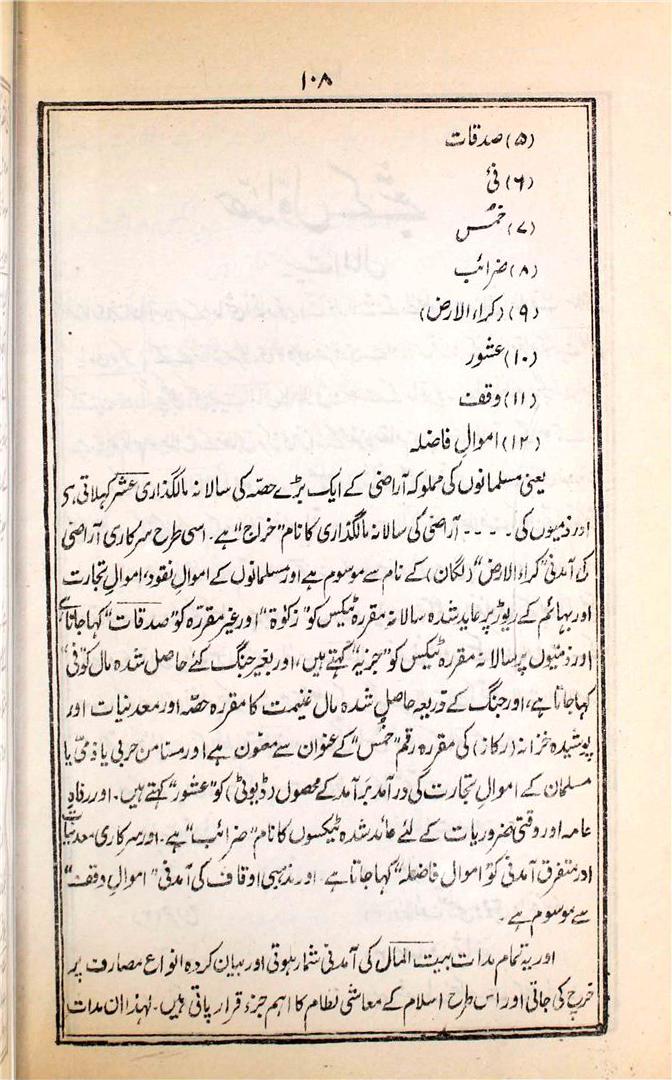 ۱۰۸
(۵) صدقات
(۶) فئ
(۷) خمس
(۸) ضرائب
(۹) (کراء الارض)
(۱۰) عشور
(۱۱) وقف
(۱۲) اموالِ فاضلہ
یعنی مسلمانوں کی مملوکہ آراضی کے ایک بڑے حصّہ کی سالانہ مالگذاری عشر کہلاتی ہی
اور ذمیوں کی ۔۔۔۔ آراضی کی سالانہ مالگذاری کا نام "خراج" ہے۔ اسی طرح سرکاری آراضی
کی آمدنی "کراء الارض" (لگان) کے نام سے موسوم ہے اور مسلمانوں کے اموالِ نقود، اموالِ تجارت
اور بہائم کے ریوڑ پر عاید شدہ سالانہ مقررہ ٹیکس کو "زکوٰۃ" اور غیر مقررہ کو "صدقات" کہا جاتا ہے
اور ذمیوں پر سالانہ مقررہ ٹیکس کو "جزیہ" کہتے ہیں، اور بغیر جنگ کئے حاصل شدہ مال کو "فئ"
کہا جاتا ہے، اور جنگ کے ذریعہ حاصل شدہ مال غنیمت کا مقررہ حصّہ اور معدنیات اور
پوشیدہ خزانہ (رکاز) کی مقررہ رقم "خمس" کے عنوان سے معنون ہے اور مستامن حربی یا ذمیّ یا
مسلمان کے اموالِ تجارت کی درآمد برآمد کے محصول (ڈیوٹی) کو "عشور" کہتے ہیں۔ اور رفاہِ
عامہ اور وقتی ضروریات کے لئے عائد شدہ ٹیکسوں کا نام "ضرائب" ہے۔ اور سرکاری معدنیات
اور متفرق آمدنی کو "اموال فاضلہ" کہا جاتا ہے۔ اور مذہبی اوقاف کی آمدنی "اموالِ وقف"
سے موسوم ہے۔
اور یہ تمام مدات بیت المال کی آمدنی شمار ہوتی اور بیان کردہ انواع مصارف پر
خرچ کی جاتی اور اس طرح اسلام کے معاشی نظام کا اہم جزء قرار پاتی ہیں۔ لہٰذا ان مدات